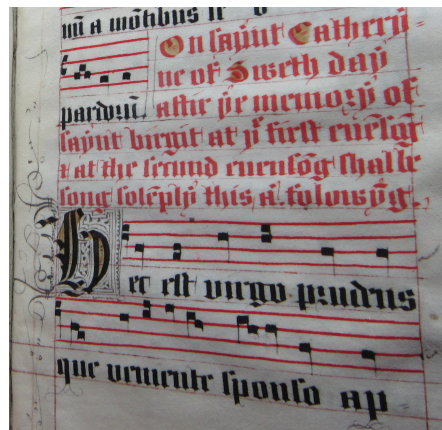 On saynt Cathery
parduu. ne of Sweth day
aftir ye memory of
saynt birgit at ye first euēsōg
& at the secund euensōg shalbe
song solēply this a. folowȳg.
Hec est virgo prudens
que veniente sponso ap